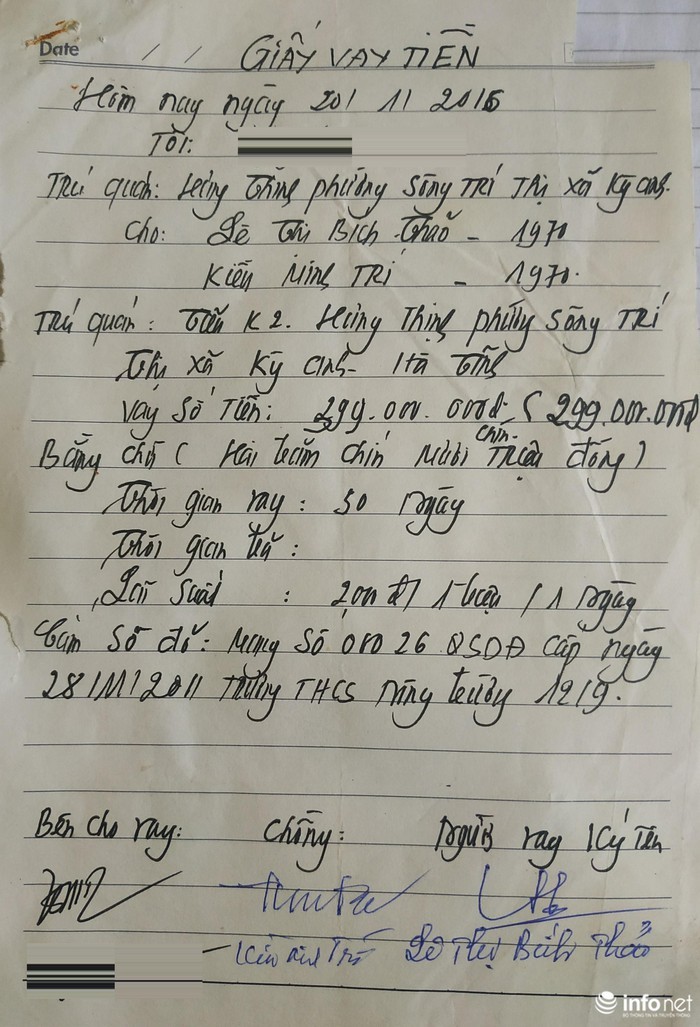 Date / /
GIẤY VAY TIỀN
Hôm nay ngày 20/ 11 2016
Tôi:
Trú quán: Hưng Thịnh phường Sông TRÍ Thị xã Kỳ anh.
Cho: Lê Thị Bích Thảo - 1970
Kiều Minh TRÍ - 1970.
Trú quán: Tân K2. Hưng Thịnh phường Sông TRÍ
Thị xã Kỳ anh - Hà Tĩnh
Vay Số Tiền: 299.000.000đ (299.000.000đ
Bằng chữ ( Hai trăm chín mươi chín Triệu đồng)
Thời gian vay: 50 ngày
Thời gian trả:
Lãi Suất : 2,000đ/ 1 triệu / 1 ngày
Cầm Sổ đỏ: mang Số 00026 QSDĐ cấp ngày
28/11/2011 Trường THCS 12/9.
Bên cho vay: Chồng: Người vay Ký Tên
Lê Thị Bích Thảo
infonet